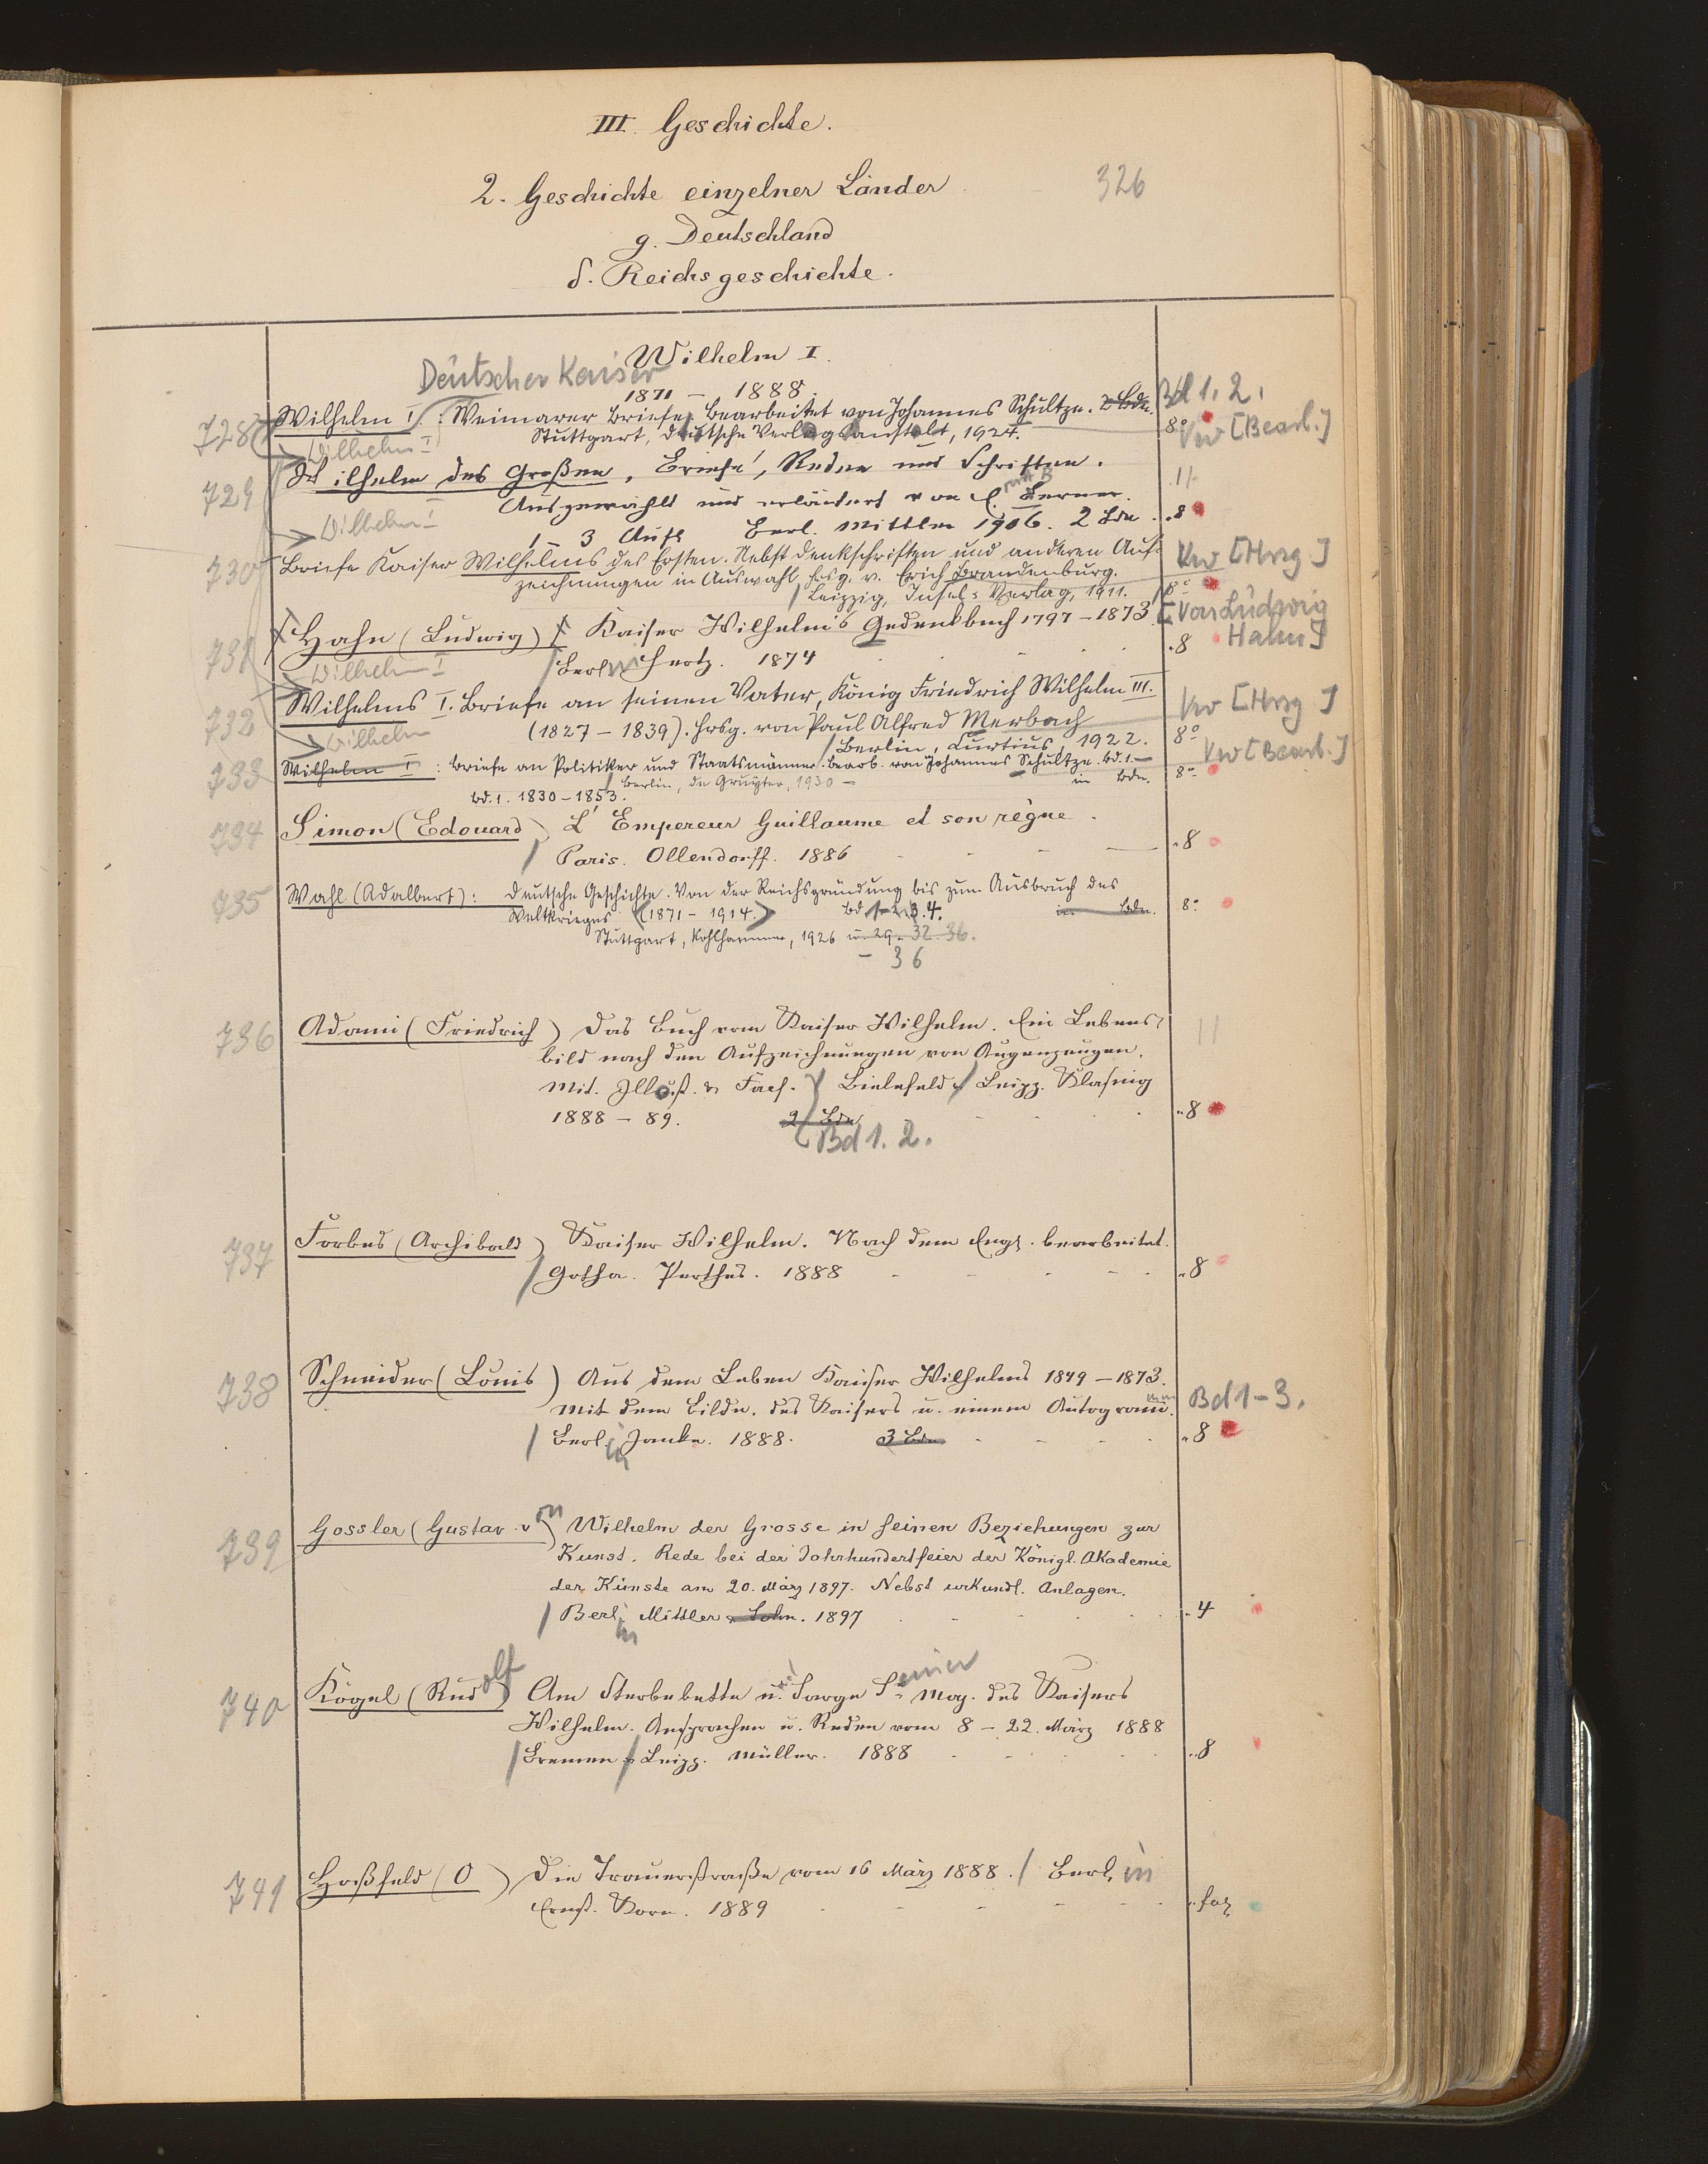 III. Geschichte.
2. Geschichte einzelner Länder
326
g. Deutschland
δ. Reichsgeschichte.
Wilhelm I.
Deutscher Kaiser
1871 – 1888.
728 Wilhelm I.: Weimarer Briefe. Bearbeitet von Johannes Schultze. 2 Bde. Bd 1. 2.
Stuttgart, Deutsche Verlagsanstalt, 1924. 8° Vw [Bearb.]
Wilhelm I
729 Wilhelm des Großen, Briefe, Reden und Schriften.
Ausgewählt und erläutert von E. Berner.
Wilhelm I
1–3 Aufl. Berl. Mittler 1906. 2 Bde. 8
730 Briefe Kaiser Wilhelms des Ersten. Nebst Denkschriften und anderen Auf- Vw [Hrsg]
zeichnungen in Auswahl hrsg. v. Erich Brandenburg.
Leipzig, Insel-Verlag, 1911. 8°
731 Hahn (Ludwig) Kaiser Wilhelm's Gedenkbuch 1797–1873. [Von Ludwig
Hahn]
Berlin Hertz. 1874 8
Wilhelm I
732 Wilhelms I. Briefe an seinen Vater, König Friedrich Wilhelm III. Vw [Hrsg]
(1827–1839). Hrsg. von Paul Alfred Merbach
Wilhelm
Berlin, Curtius, 1922. 8°
733 Wilhelm I: Briefe an Politiker und Staatsmänner. Bearb. von Johannes Schultze. Bd. 1.– Vw [Bearb.]
Berlin, de Gruyter, 1930 – in Bdn. 8°
Bd. 1. 1830–1853.
734 Simon (Edouard) L'Empereur Guillaume et son règne.
Paris. Ollendorff. 1886 8
735 Wahl (Adalbert): Deutsche Geschichte. Von der Reichsgründung bis zum Ausbruch des
Weltkrieges (1871–1914.) Bd 1–2.3.4. in Bdn. 8°
Stuttgart, Kohlhammer, 1926 u. 29. 32. 36.
– 36
736 Adami (Friedrich) Das Buch vom Kaiser Wilhelm. Ein Lebens-
bild nach den Aufzeichnungen von Augenzeugen.
Mit. Illust. & Facs. Bielefeld & Leipz. Klasing
1888–89. 2 Bde. 8
Bd 1. 2.
737 Forbes (Archibald) Kaiser Wilhelm. Nach dem Engl. bearbeitet.
Gotha. Perthes. 1888 8
738 Schneider (Louis) Aus dem Leben Kaiser Wilhelms 1849–1873.
Mit dem Bilde des Kaisers u. einem Autogram. Bd 1–3.
Berlin Janke. 1888. 3 Bde. 8
739 Gossler (Gustav von) Wilhelm der Grosse in seinen Beziehungen zur
Kunst. Rede bei der Jahrhundertfeier der Königl. Akademie
der Künste am 20. März 1897. Nebst urkundl. Anlagen.
Berlin Mittler & Sohn. 1897 4
740 Kögel (Rudolf) Am Sterbebette u. Sarge Seiner Maj. des Kaisers
Wilhelm. Ansprachen u. Reden vom 8–22. März 1888
Bremen & Leipz. Müller. 1888 8
741 Hoßfeld (O) Die Trauerstraße vom 16 März 1888. Berlin
Ernst. Korn. 1889 fol